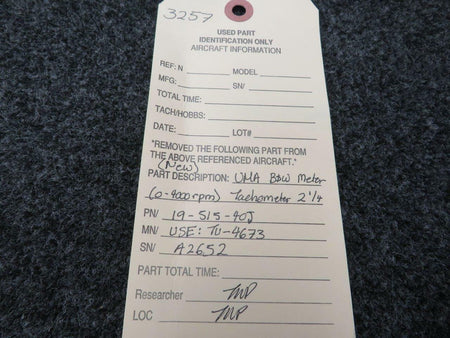 3257
USED PART
IDENTIFICATION ONLY
AIRCRAFT INFORMATION
REF: N MODEL
MFG: SN/
TOTAL TIME:
TACH/HOBBS:
DATE: LOT#
"REMOVED THE FOLLOWING PART FROM
THE ABOVE REFERENCED AIRCRAFT."
(New)
PART DESCRIPTION: UMA B&W Meter
(0-4000rpm) Tachometer 2 1/4
PN/ 19-515-40J
MN/ USE: TU-4673
SN/ A2652
PART TOTAL TIME:
Researcher MP
LOC MP